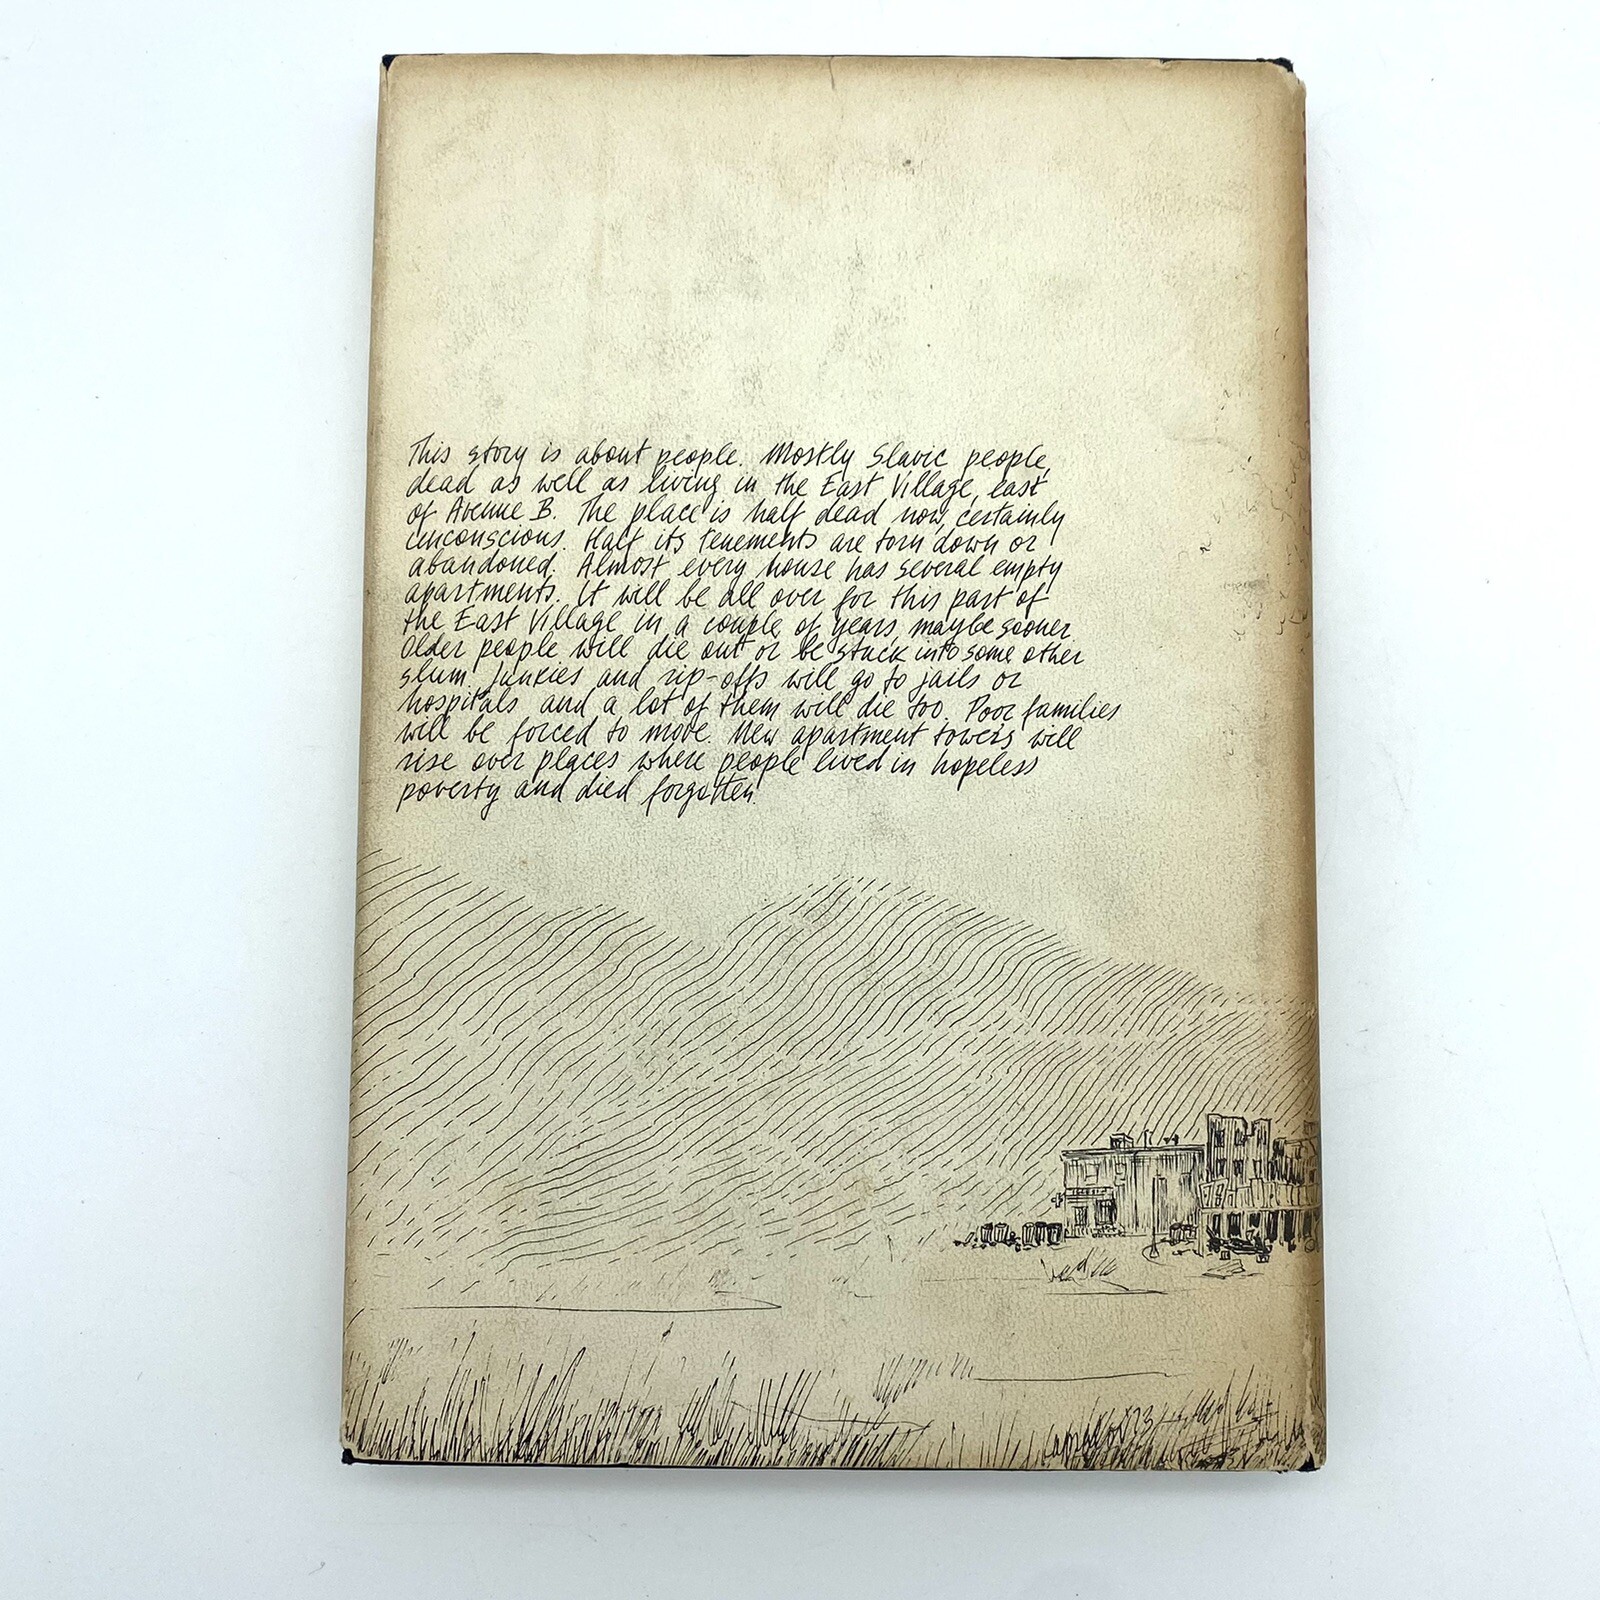 This story is about people. Mostly Slavic people,
dead as well as living in the East Village, east
of Avenue B. The place is half dead now, certainly
unconscious. Half its tenements are torn down or
abandoned. Almost every house has several empty
apartments. It will be all over for this part of
the East Village in a couple of years, maybe sooner.
Older people will die out or be stuck into some other
slum. Junkies and rip-offs will go to jails or
hospitals and a lot of them will die too. Poor families
will be forced to move. New apartment towers will
rise over places where people lived in hopeless
poverty and died forgotten.